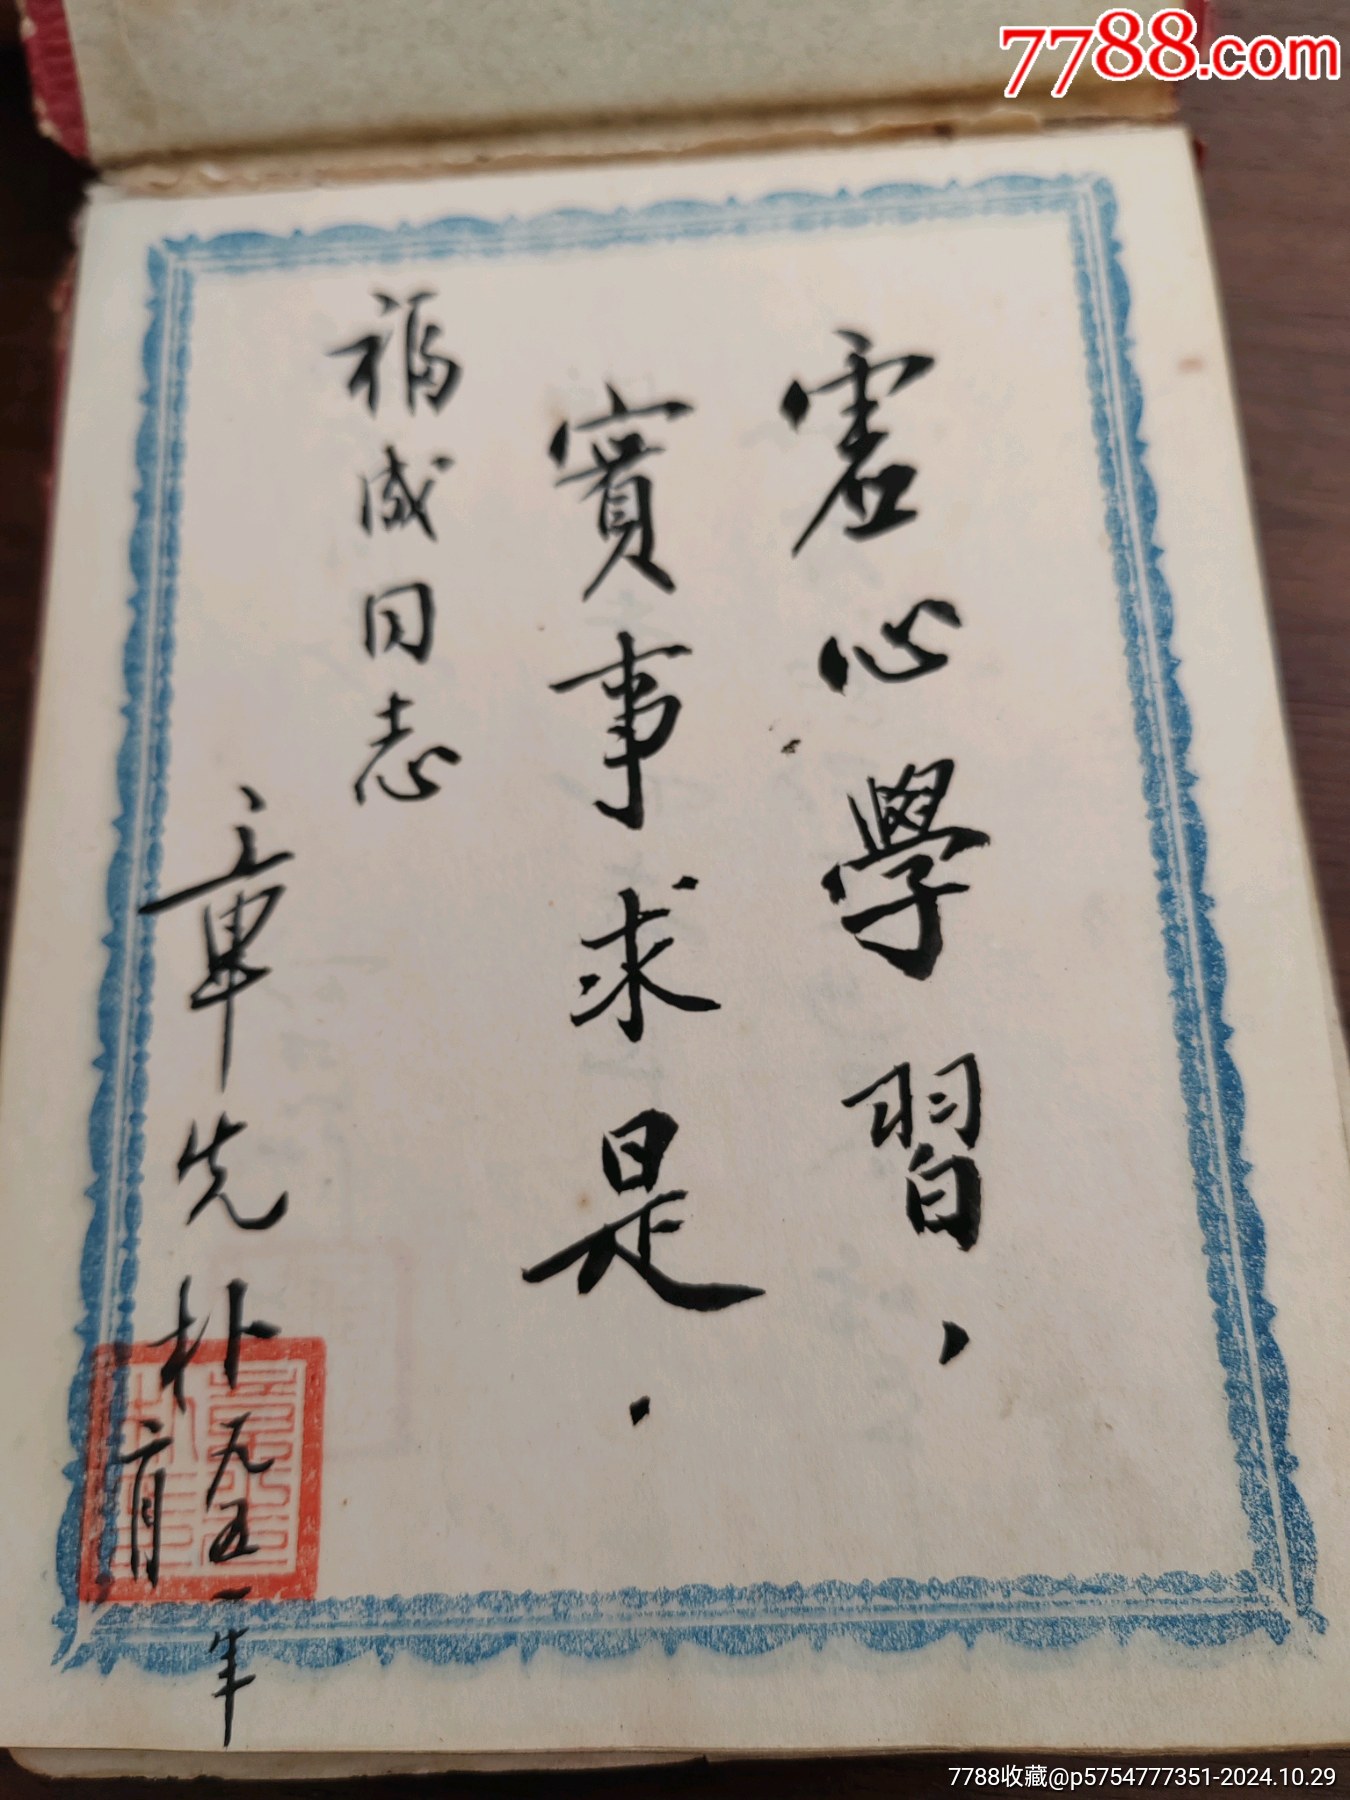 7788.com
虛心學習，
實事求是．
福成同志
章先朴
一九五一年
六月
7788收藏@p5754777351-2024.10.29